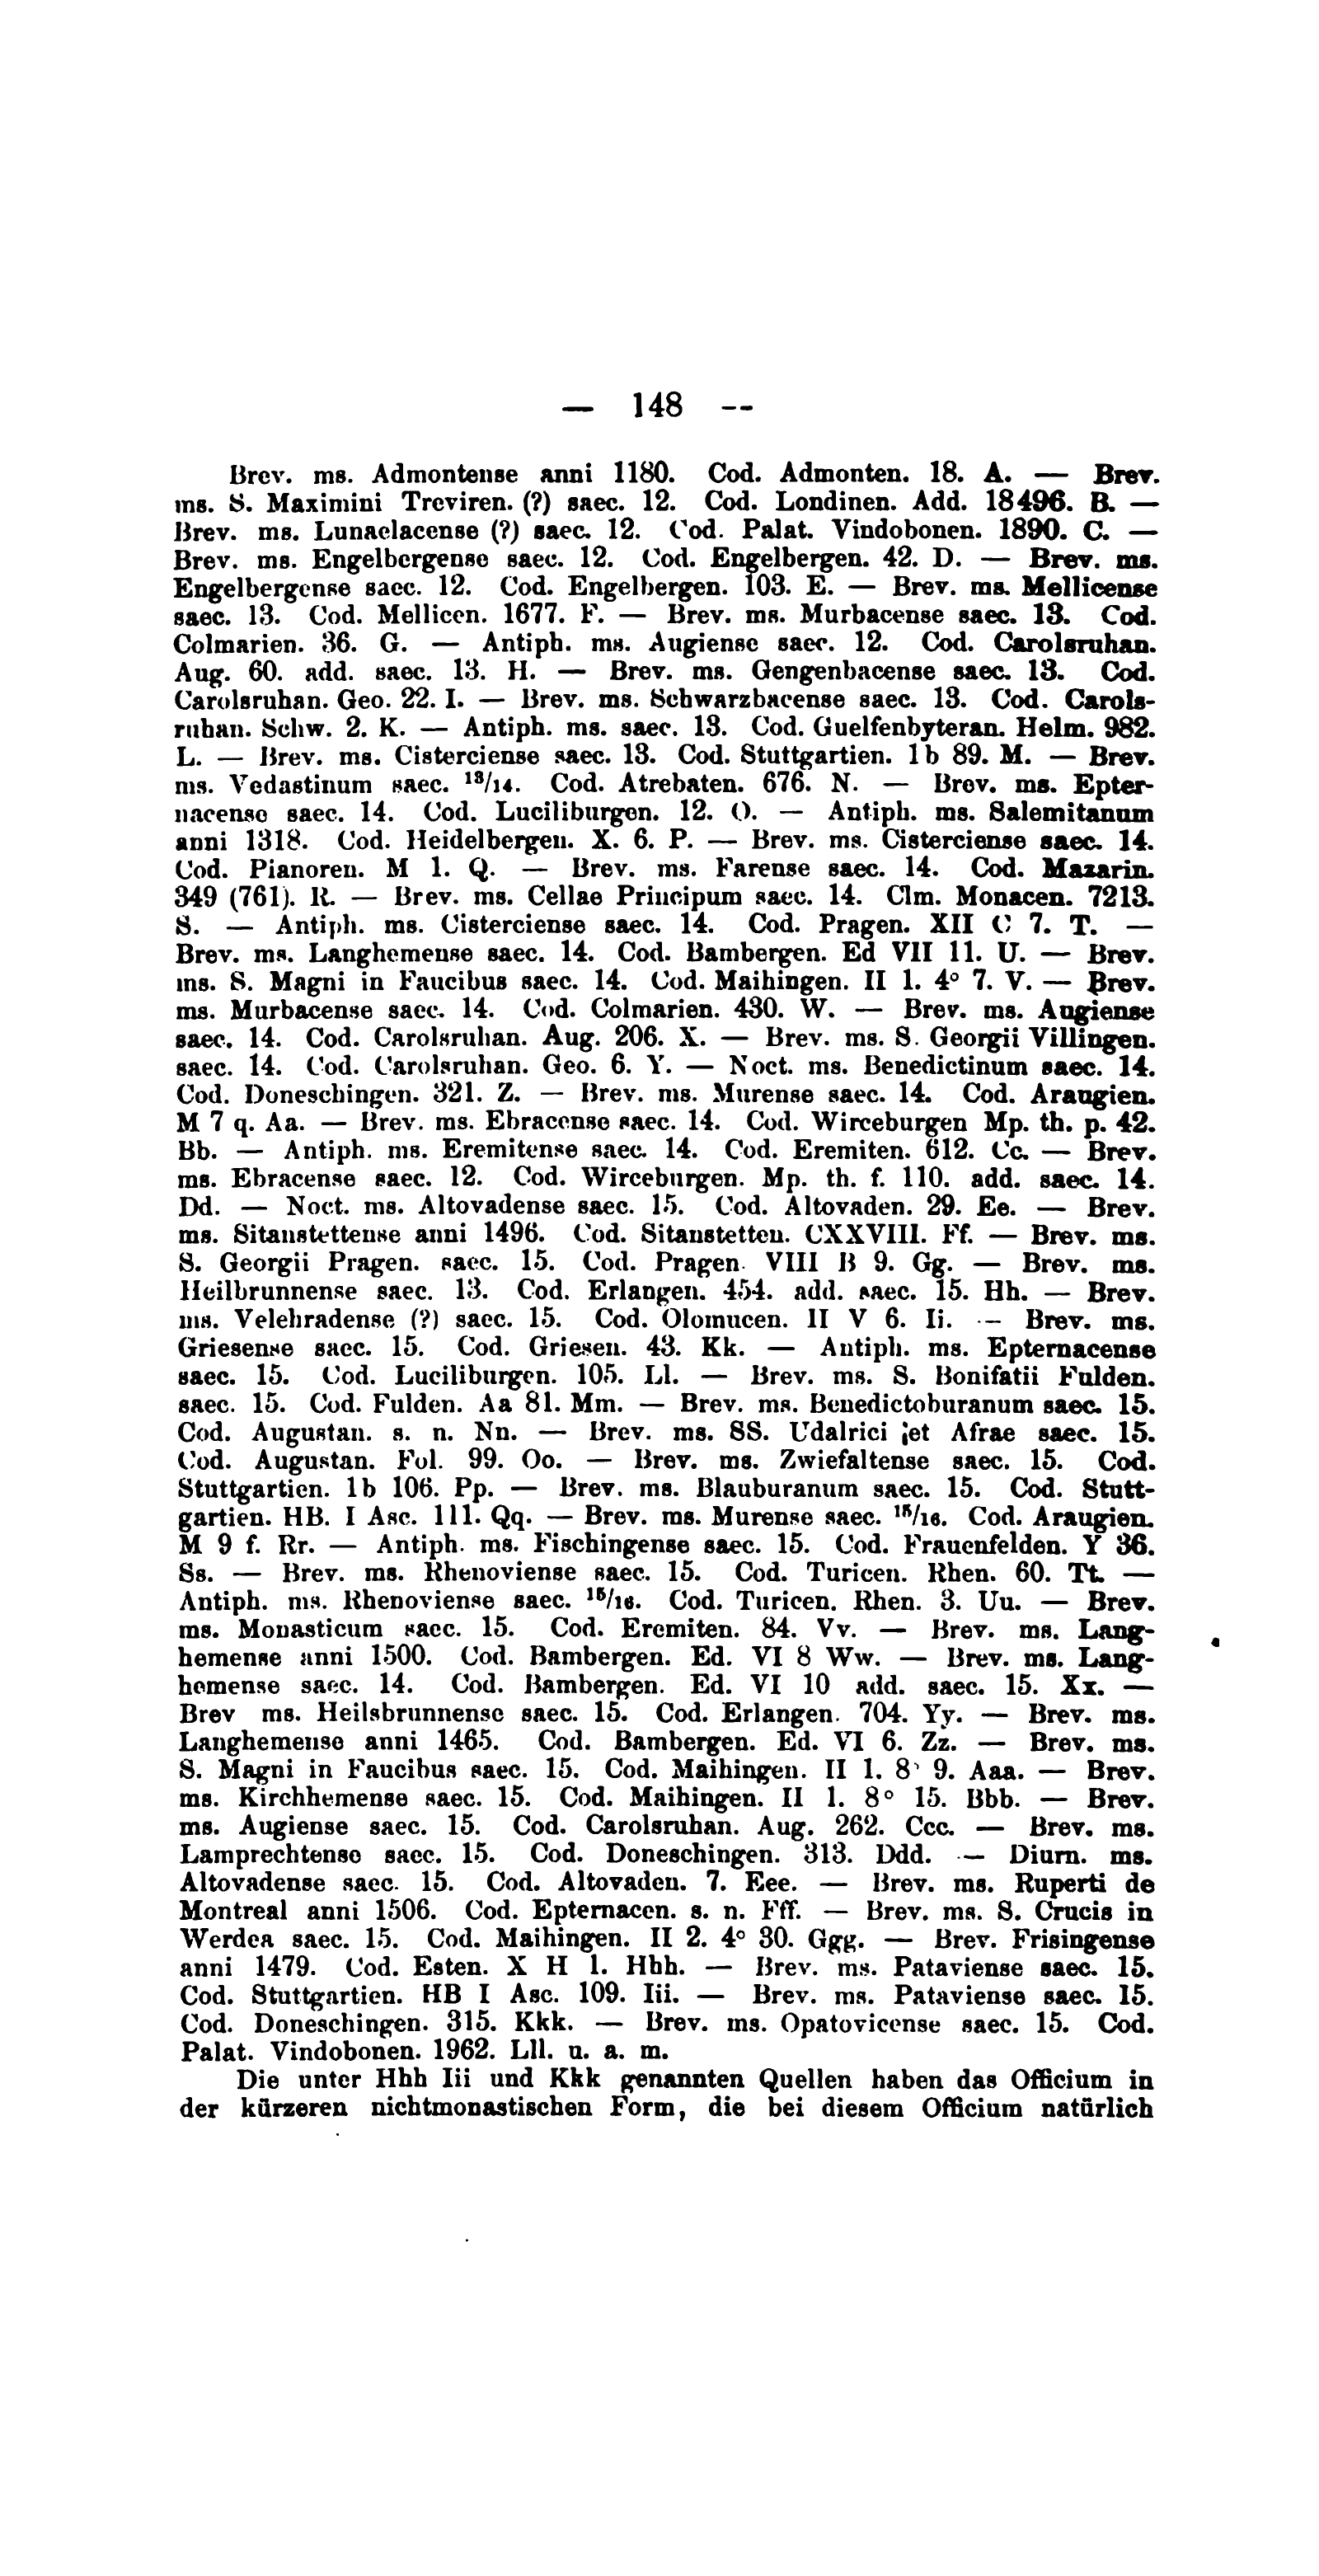 — 148 --
Brev. ms. Admontense anni 1180. Cod. Admonten. 18. A. — Brev.
ms. S. Maximini Treviren. (?) saec. 12. Cod. Londinen. Add. 18496. B. —
Brev. ms. Lunaelacense (?) saec. 12. Cod. Palat. Vindobonen. 1890. C. —
Brev. ms. Engelbergense saec. 12. Cod. Engelbergen. 42. D. — Brev. ms.
Engelbergense saec. 12. Cod. Engelbergen. 103. E. — Brev. ms. Mellicense
saec. 13. Cod. Mellicen. 1677. F. — Brev. ms. Murbacense saec. 13. Cod.
Colmarien. 36. G. — Antiph. ms. Augiense saec. 12. Cod. Carolsruhan.
Aug. 60. add. saec. 13. H. — Brev. ms. Gengenbacense saec. 13. Cod.
Carolsruhan. Geo. 22. I. — Brev. ms. Schwarzbacense saec. 13. Cod. Carols-
ruhan. Schw. 2. K. — Antiph. ms. saec. 13. Cod. Guelfenbyteran. Helm. 982.
L. — Brev. ms. Cisterciense saec. 13. Cod. Stuttgartien. 1b 89. M. — Brev.
ms. Vedastinum saec. 13/14. Cod. Atrebaten. 676. N. — Brev. ms. Epter-
nacense saec. 14. Cod. Luciliburgen. 12. O. — Antiph. ms. Salemitanum
anni 1318. Cod. Heidelbergen. X. 6. P. — Brev. ms. Cisterciense saec. 14.
Cod. Pianoren. M 1. Q. — Brev. ms. Farense saec. 14. Cod. Mazarin.
349 (761). R. — Brev. ms. Cellae Principum saec. 14. Clm. Monacen. 7213.
S. — Antiph. ms. Cisterciense saec. 14. Cod. Pragen. XII C 7. T. —
Brev. ms. Langhemense saec. 14. Cod. Bambergen. Ed VII 11. U. — Brev.
ms. S. Magni in Faucibus saec. 14. Cod. Maihingen. II 1. 4° 7. V. — Brev.
ms. Murbacense saec. 14. Cod. Colmarien. 430. W. — Brev. ms. Augiense
saec. 14. Cod. Carolsruhan. Aug. 206. X. — Brev. ms. S. Georgii Villingen.
saec. 14. Cod. Carolsruhan. Geo. 6. Y. — Noct. ms. Benedictinum saec. 14.
Cod. Doneschingen. 321. Z. — Brev. ms. Murense saec. 14. Cod. Araugien.
M 7 q. Aa. — Brev. ms. Ebracense saec. 14. Cod. Wirceburgen Mp. th. p. 42.
Bb. — Antiph. ms. Eremitense saec. 14. Cod. Eremiten. 612. Cc. — Brev.
ms. Ebracense saec. 12. Cod. Wirceburgen. Mp. th. f. 110. add. saec. 14.
Dd. — Noct. ms. Altovadense saec. 15. Cod. Altovaden. 29. Ee. — Brev.
ms. Sitanstettense anni 1496. Cod. Sitanstetten. CXXVIII. Ff. — Brev. ms.
S. Georgii Pragen. saec. 15. Cod. Pragen. VIII B 9. Gg. — Brev. ms.
Heilbrunnense saec. 13. Cod. Erlangen. 454. add. saec. 15. Hh. — Brev.
ms. Velehradense (?) saec. 15. Cod. Olomucen. II V 6. Ii. — Brev. ms.
Griesense saec. 15. Cod. Griesen. 43. Kk. — Antiph. ms. Epternacense
saec. 15. Cod. Luciliburgen. 105. Ll. — Brev. ms. S. Bonifatii Fulden.
saec. 15. Cod. Fulden. Aa 81. Mm. — Brev. ms. Benedictoburanum saec. 15.
Cod. Augustan. s. n. Nn. — Brev. ms. SS. Udalrici et Afrae saec. 15.
Cod. Augustan. Fol. 99. Oo. — Brev. ms. Zwiefaltense saec. 15. Cod.
Stuttgartien. 1b 106. Pp. — Brev. ms. Blauburanum saec. 15. Cod. Stutt-
gartien. HB. I Asc. 111. Qq. — Brev. ms. Murense saec. 15/16. Cod. Araugien.
M 9 f. Rr. — Antiph. ms. Fischingense saec. 15. Cod. Frauenfelden. Y 36.
Ss. — Brev. ms. Rhenoviense saec. 15. Cod. Turicen. Rhen. 60. Tt. —
Antiph. ms. Rhenoviense saec. 15/16. Cod. Turicen. Rhen. 3. Uu. — Brev.
ms. Monasticum saec. 15. Cod. Eremiten. 84. Vv. — Brev. ms. Lang-
hemense anni 1500. Cod. Bambergen. Ed. VI 8 Ww. — Brev. ms. Lang-
hemense saec. 14. Cod. Bambergen. Ed. VI 10 add. saec. 15. Xx. —
Brev ms. Heilsbrunnense saec. 15. Cod. Erlangen. 704. Yy. — Brev. ms.
Langhemense anni 1465. Cod. Bambergen. Ed. VI 6. Zz. — Brev. ms.
S. Magni in Faucibus saec. 15. Cod. Maihingen. II 1. 8° 9. Aaa. — Brev.
ms. Kirchhemense saec. 15. Cod. Maihingen. II 1. 8° 15. Bbb. — Brev.
ms. Augiense saec. 15. Cod. Carolsruhan. Aug. 262. Ccc. — Brev. ms.
Lamprechtense saec. 15. Cod. Doneschingen. 313. Ddd. — Diurn. ms.
Altovadense saec. 15. Cod. Altovaden. 7. Eee. — Brev. ms. Ruperti de
Montreal anni 1506. Cod. Epternacen. s. n. Fff. — Brev. ms. S. Crucis in
Werdea saec. 15. Cod. Maihingen. II 2. 4° 30. Ggg. — Brev. Frisingense
anni 1479. Cod. Esten. X H 1. Hhh. — Brev. ms. Pataviense saec. 15.
Cod. Stuttgartien. HB I Asc. 109. Iii. — Brev. ms. Pataviense saec. 15.
Cod. Doneschingen. 315. Kkk. — Brev. ms. Opatovicense saec. 15. Cod.
Palat. Vindobonen. 1962. Lll. u. a. m.
Die unter Hhh Iii und Kkk genannten Quellen haben das Officium in
der kürzeren nichtmonastischen Form, die bei diesem Officium natürlich